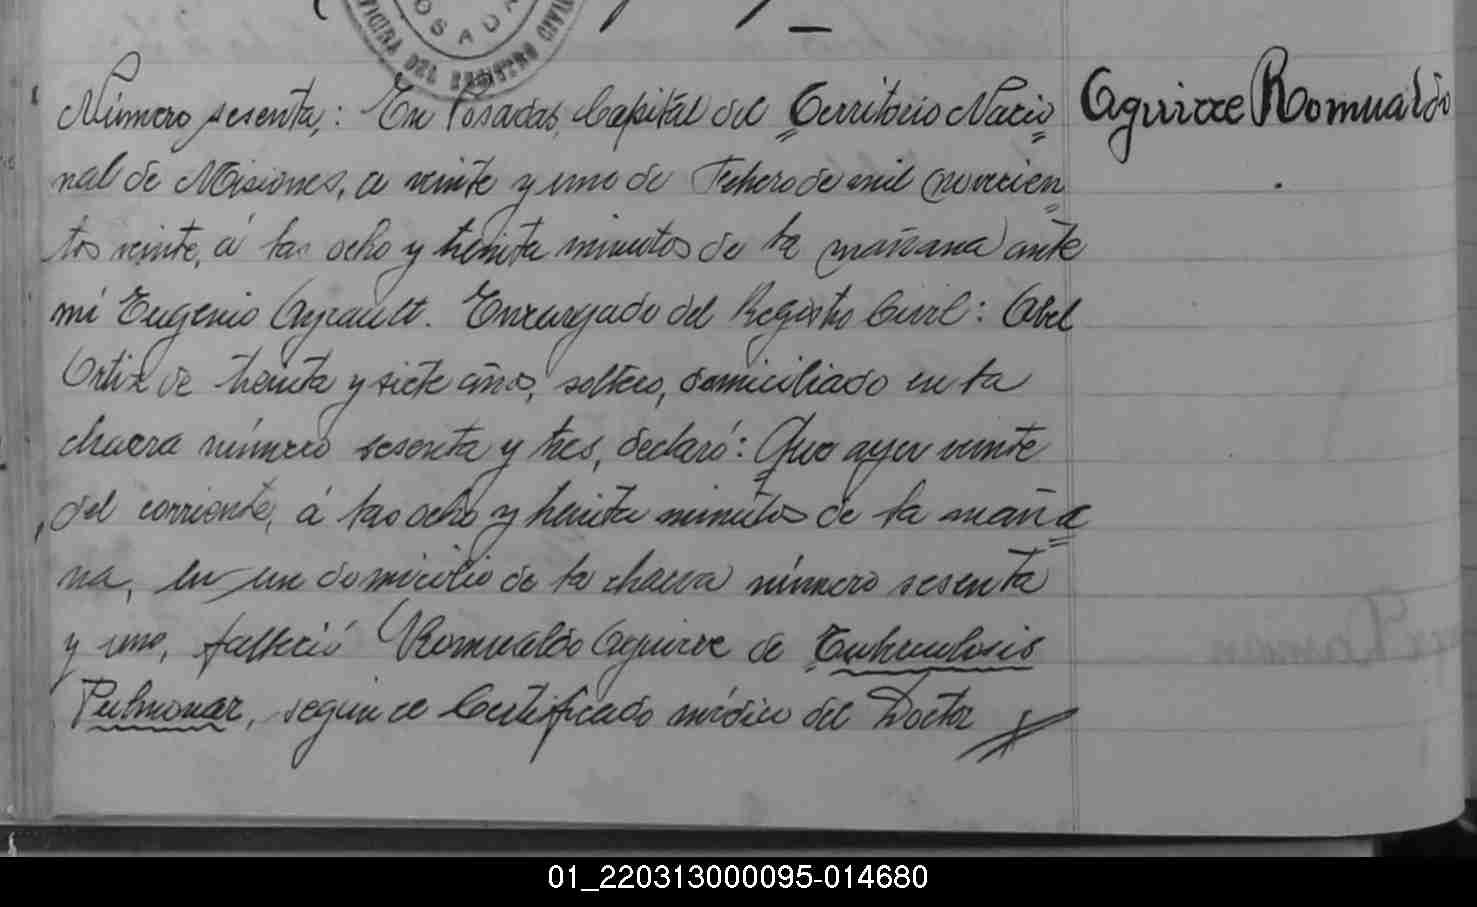 POSADAS
OFICINA DEL REGISTRO CIVIL
Número sesenta,: En Posadas, Capital del Territorio Nacio Aguirre Romualdo
nal de Misiones, a veinte y uno de Febrero de mil novecien
tos veinte, á las ocho y treinta minutos de la mañana ante
mí Eugenio Ayrault. Encargado del Registro Civil: Abel
Ortiz de treinta y siete años, soltero, domiciliado en la
chacra número sesenta y tres, declaró: Que ayer veinte
del corriente, á las ocho y treinta minutos de la maña
na, en un domicilio de la chacra número sesenta
y uno, falleció Romualdo Aguirre de Tuberculosis
Pulmonar, según el Certificado médico del Doctor
01_220313000095-014680